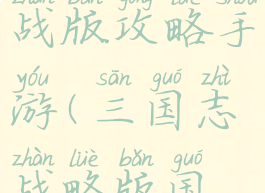 zhàn bǎn gōng lüè shǒu
战版攻略手
yóu sān guó zhì
游(三国志
zhàn lüè bǎn guó
战略版国